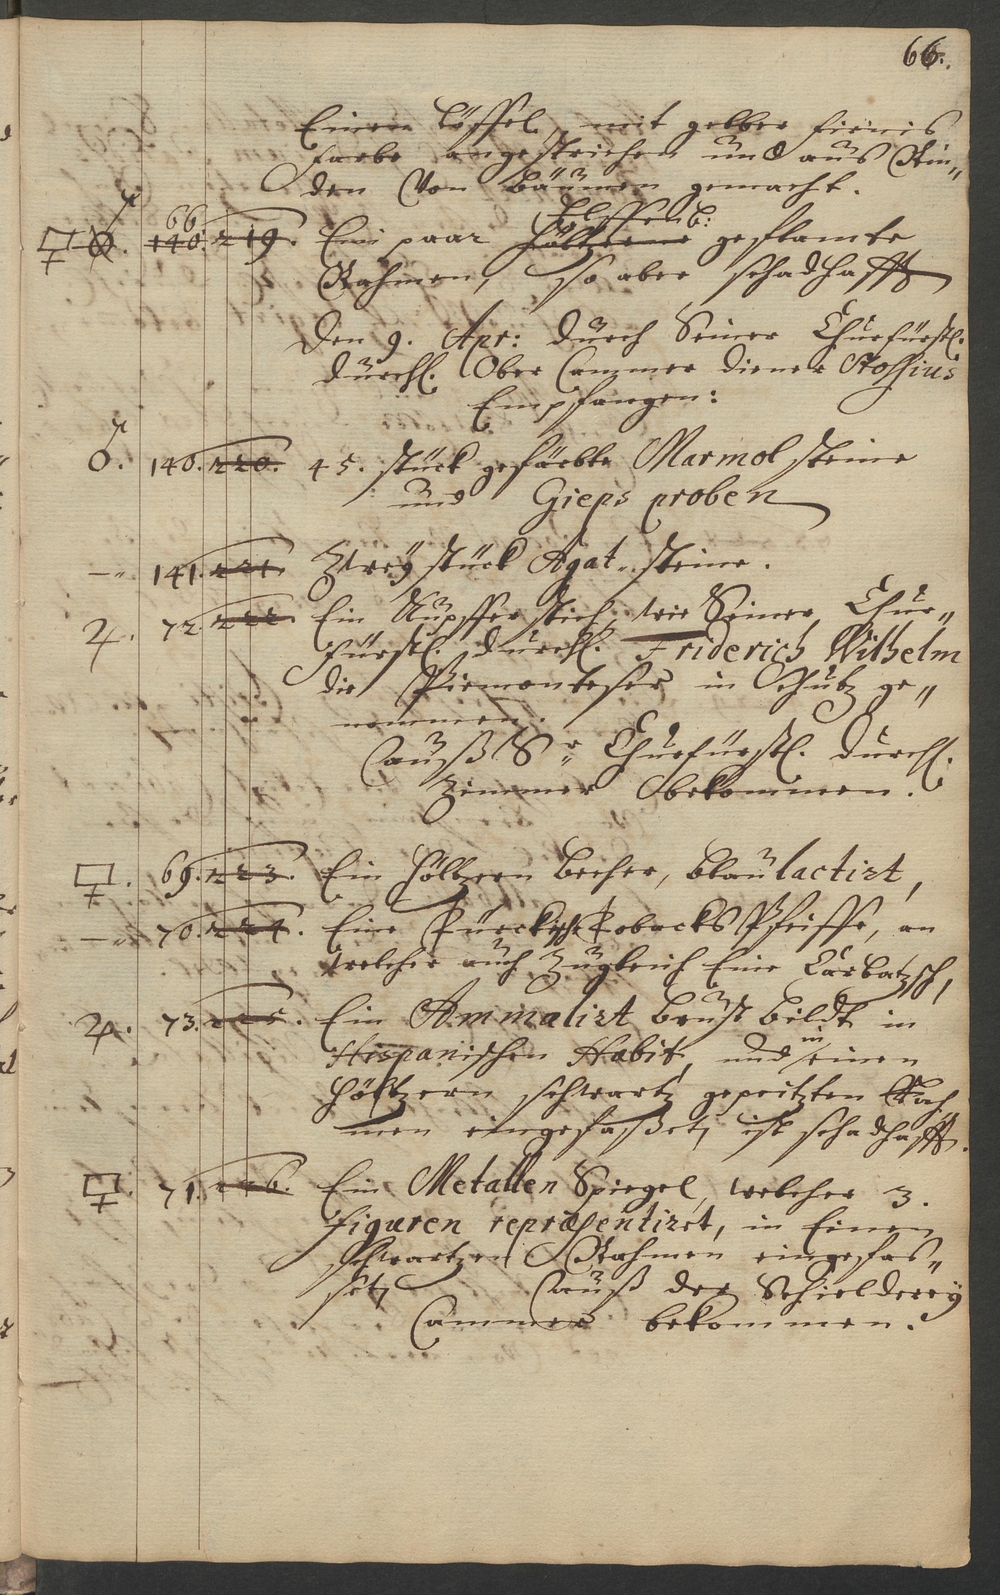 66.
Einen Löffel, mit gelber firnis
farbe angestrichen und aus Rin„
den Von Bäumen gemacht.
66
140. 219. Ein paar Höltzerne Helffenb: geflamte
Rahmen, so aber schadhafft
Den 9. Apr: durch Seiner Churfürstl.
Durchl. Ober Cammer diener
Empfangen:
♂. 140. 220. 45. stück gefärbte Marmol steine
und Gieps proben
—„ 141. 221. Zweÿ stück Agat„ steine.
♃. 72. 222. Ein Kupfferstich, wie Seiner Chur„
fürstl. Durchl. Friderich Wilhelm
die Piemonteser in Schutz ge„
nommen.
Auß Sr. Churfürstl. Durchl.
Zimmer bekommen.
69. 223. Ein Höltzern becher, blau lactirt,
—„ 70. 224. Eine Türckische Tobacks Pfeiffe, an
welcher auch Zugleich Eine Carbatzsch,
♃. 73. 225. Ein Ammalirt brust bildt in
Hispanischen Habit, und in einen
Höltzern schwartz gepeitzten Rah„
men eingefaßet, ist schadhafft.
71. 226. Ein Metallen Spiegel, welcher 3.
figuren repræsentiret, in Einen
schwartzen Rahmen eingefas„
set, Auß der Schilderey
Cammer bekommen.